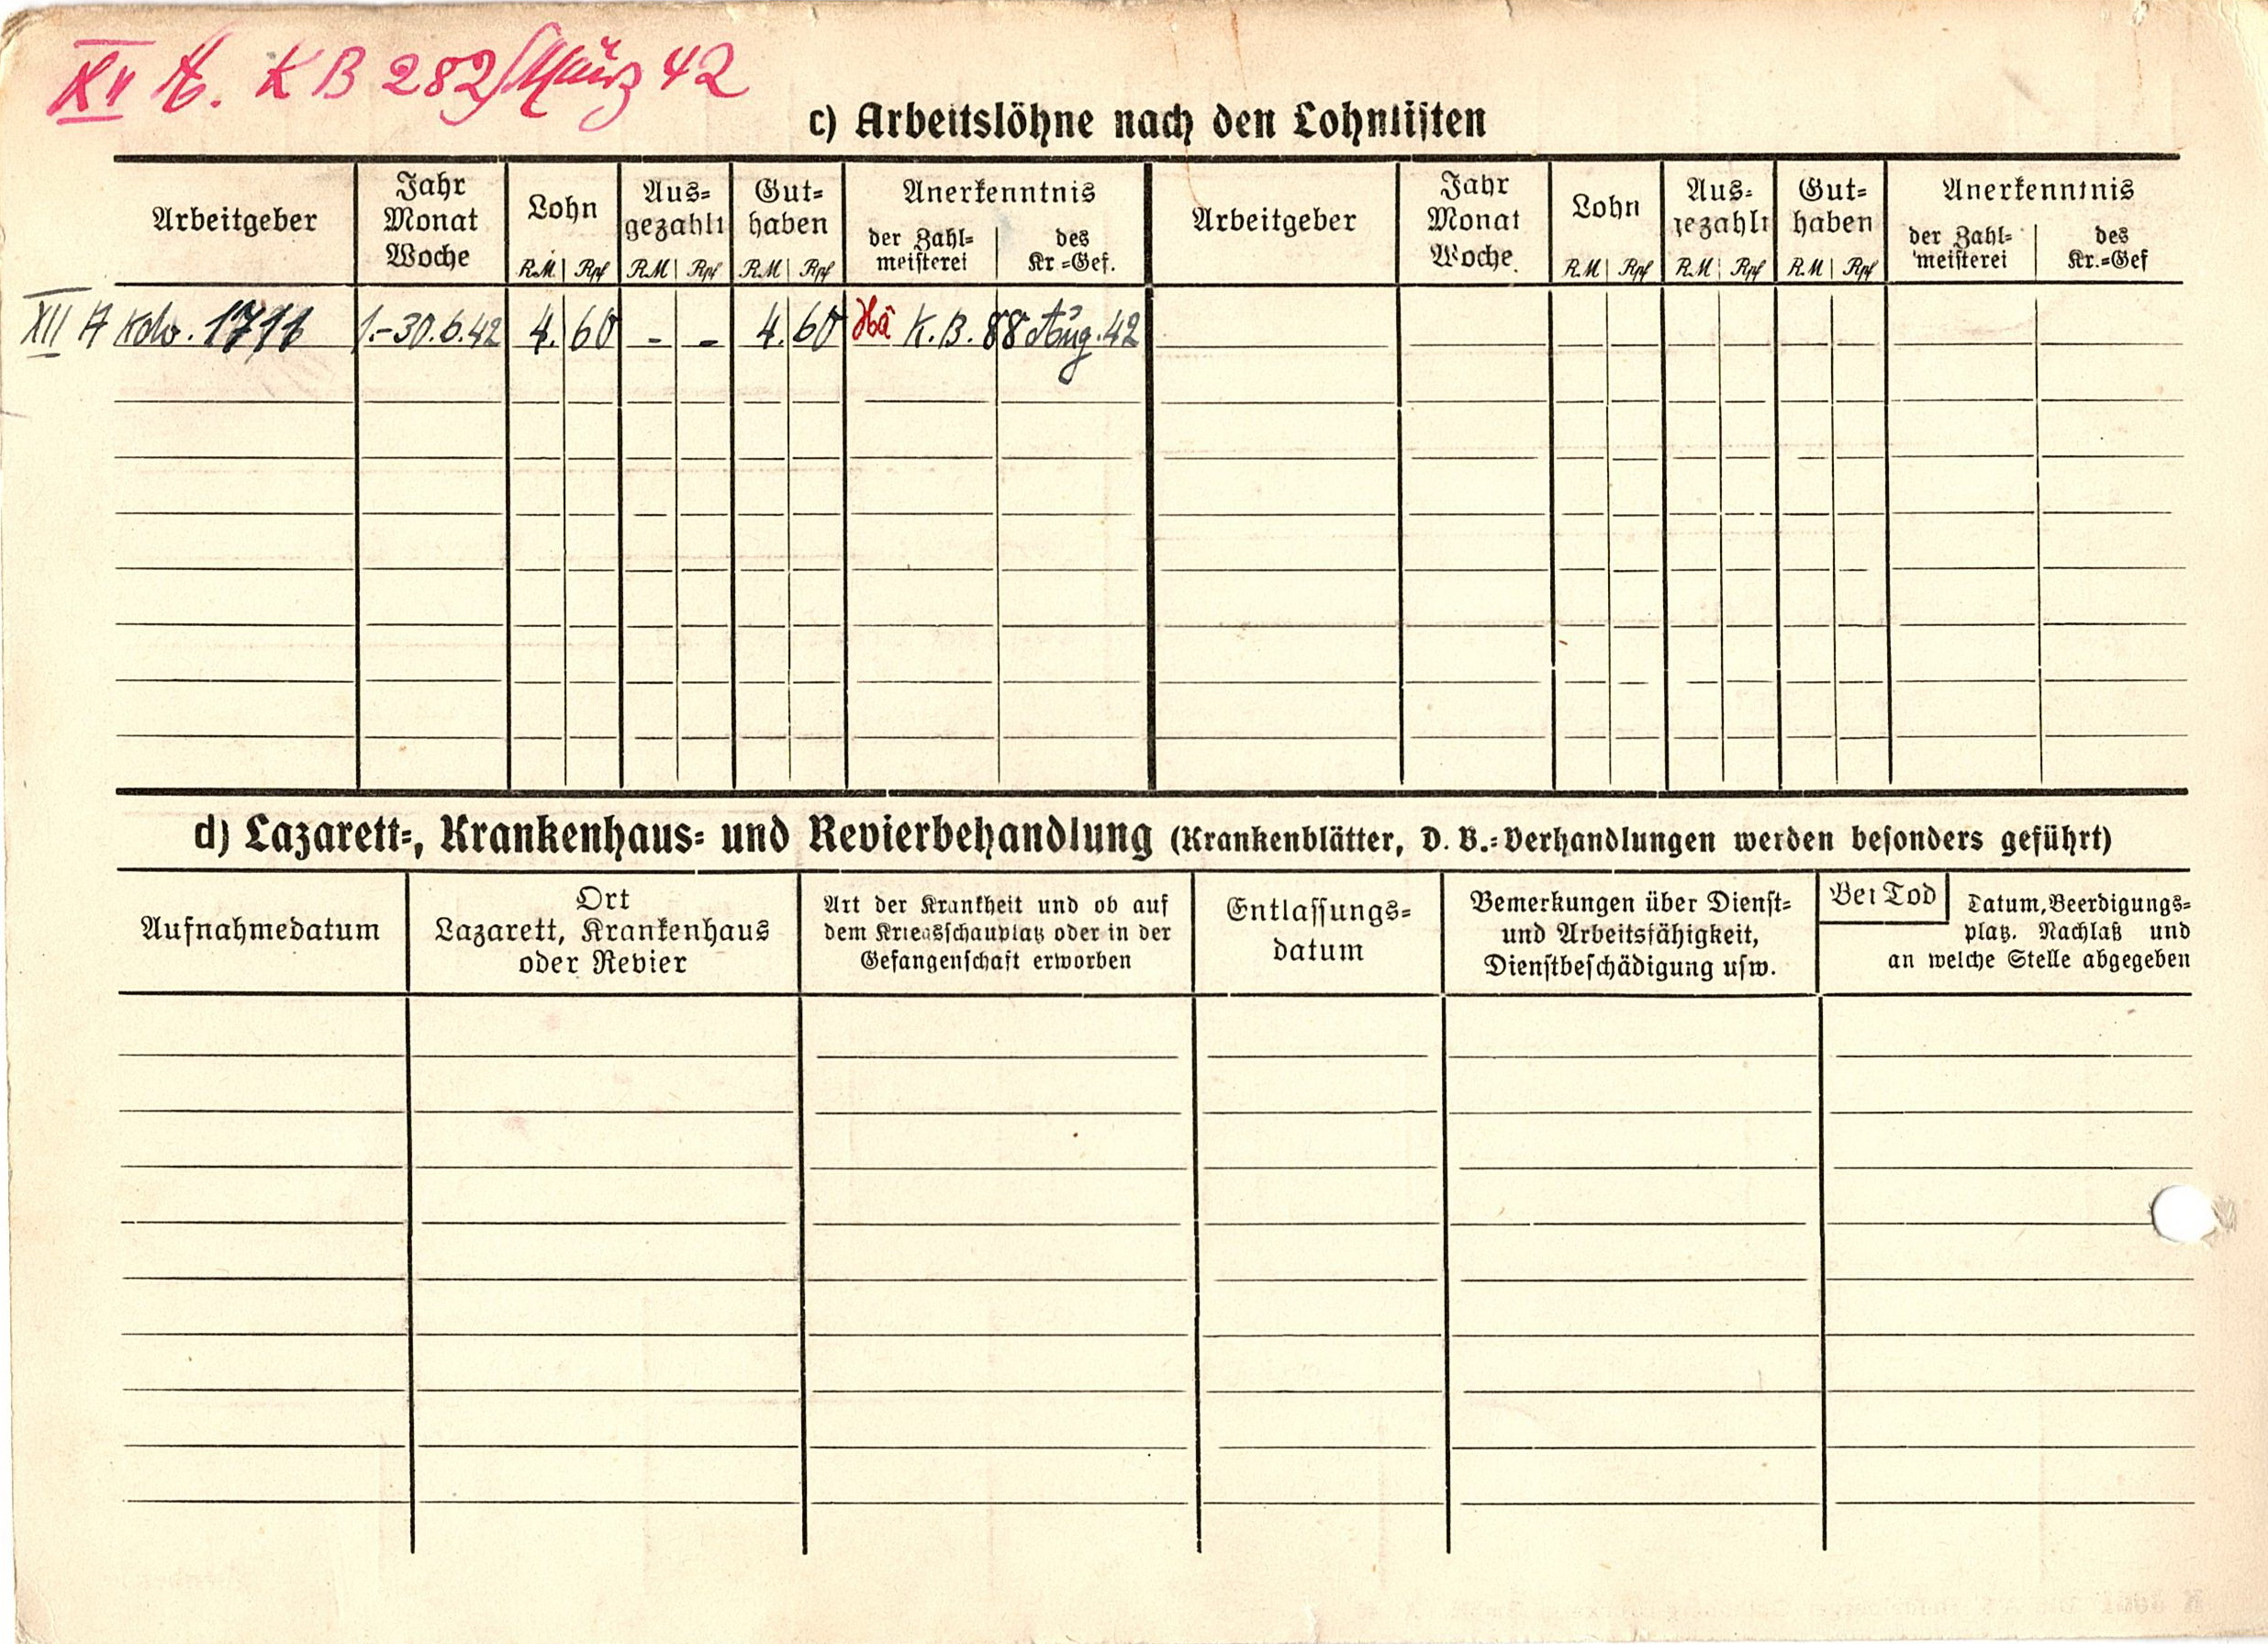 XII A. KB 282/März 42
c) Arbeitslöhne nach den Lohnlisten
Arbeitgeber
Jahr
Monat
Woche
Lohn
RM Rpf
Aus-
gezahlt
RM Rpf
Gut-
haben
RM Rpf
Anerkenntnis
der Zahl-
meisterei
des
Kr.-Gef.
Arbeitgeber
Jahr
Monat
Woche
Lohn
RM Rpf
Aus-
gezahlt
RM Rpf
Gut-
haben
RM Rpf
Anerkenntnis
der Zahl-
meisterei
des
Kr.-Gef
XII A Kdo. 1.-30.6.42 4. 60 - - 4. 60 K.B. 88 Aug. 42
d) Lazarett-, Krankenhaus- und Revierbehandlung (Krankenblätter, D. B.-Verhandlungen werden besonders geführt)
Aufnahmedatum
Ort
Lazarett, Krankenhaus
oder Revier
Art der Krankheit und ob auf
dem Kriegsschauplatz oder in der
Gefangenschaft erworben
Entlassungs-
datum
Bemerkungen über Dienst-
und Arbeitsfähigkeit,
Dienstbeschädigung usw.
Bei Tod
Datum, Beerdigungs-
platz. Nachlaß und
an welche Stelle abgegeben